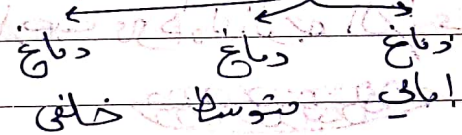 دماغ دماغ دماغ
امامي متوسط خلفي